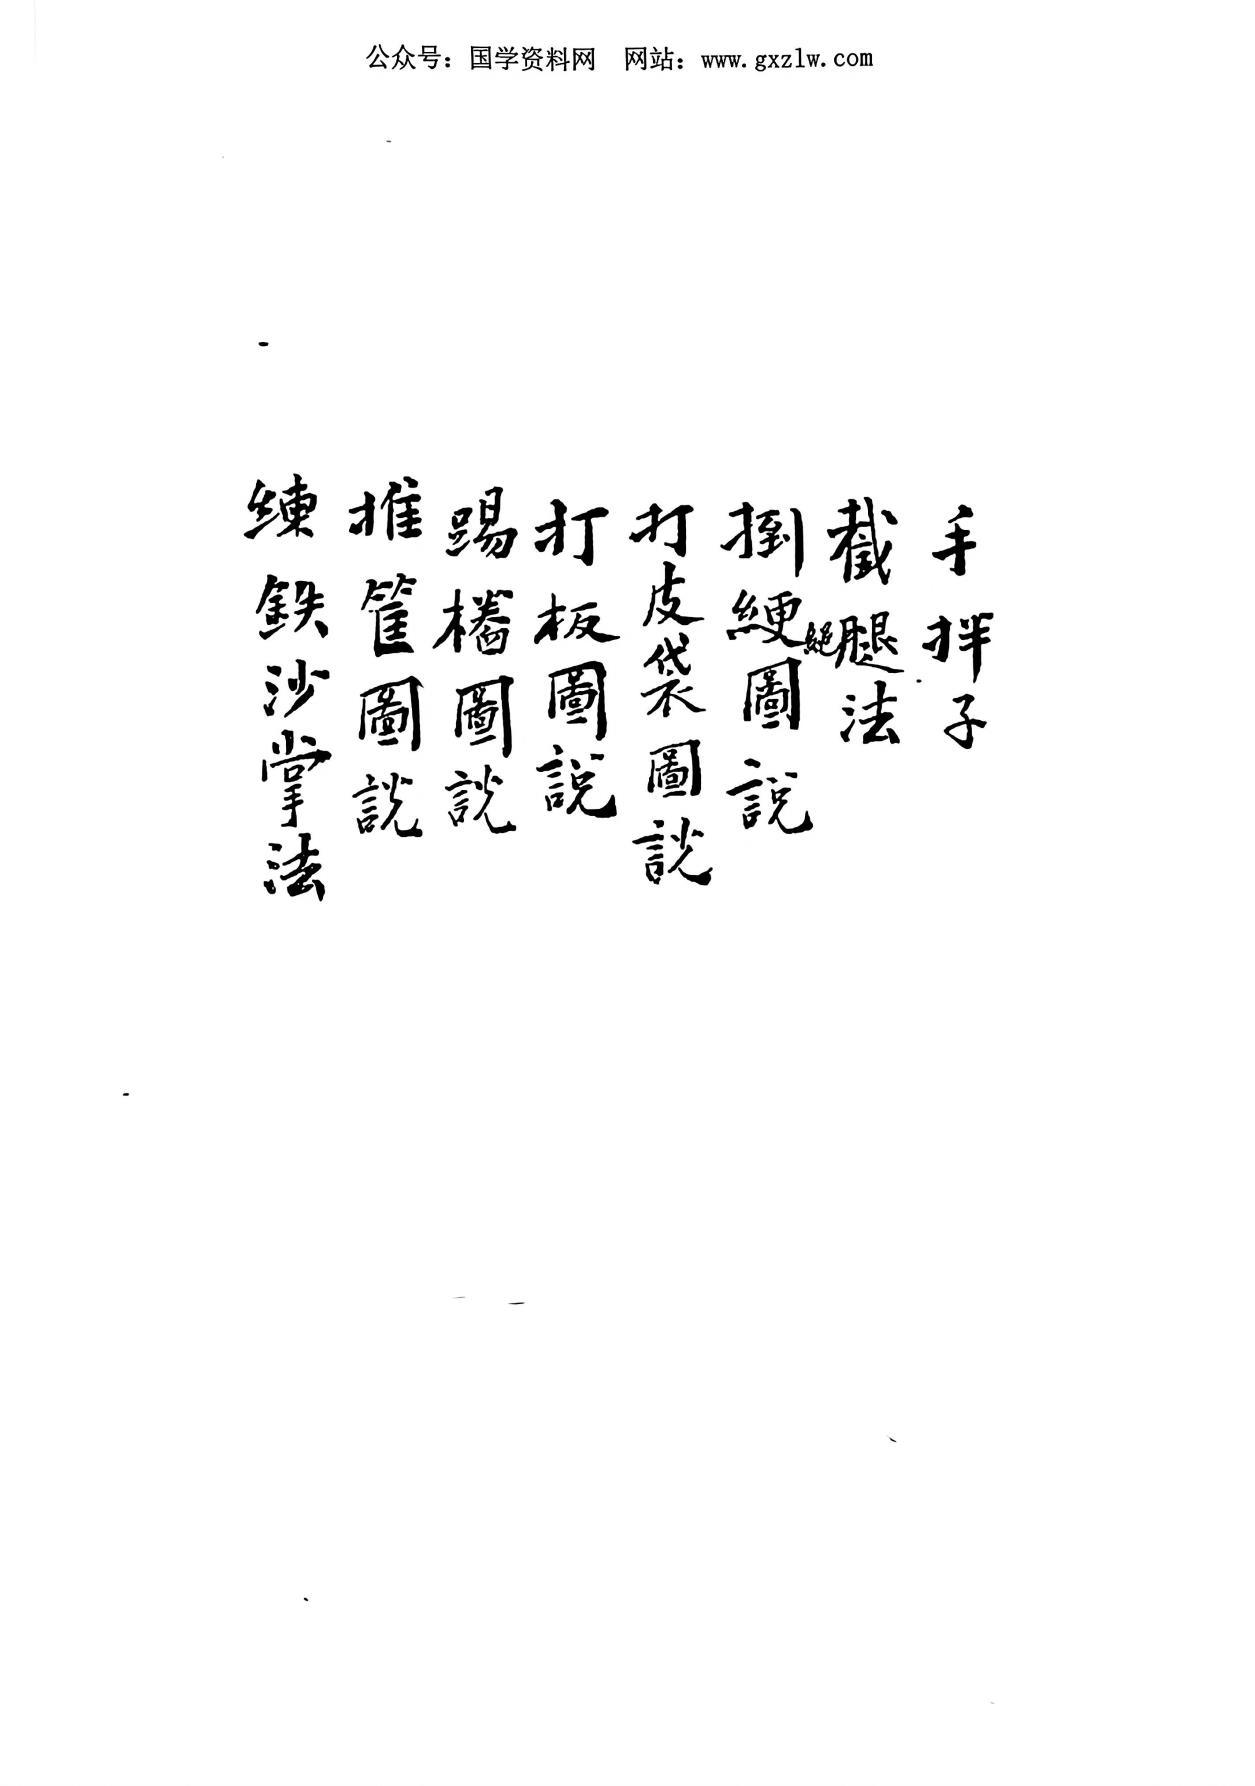 公众号：国学资料网　网站：www.gxzlw.com
手拌子
截腿法
捯綆圖說
絕
打皮袋圖説
打板圖說
踢樁圖説
推筐圖説
練鉄沙掌法